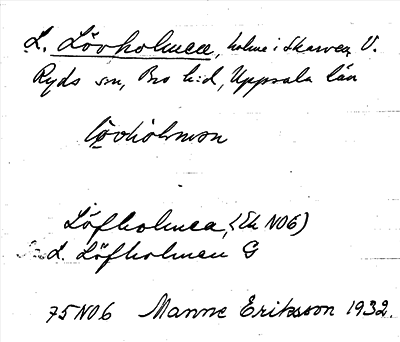 L. Lövholmen, holme i Skarven, V.
Ryds sn, Bro h:d, Uppsala län
lövhòlmən
Löfholmen, (Ek NO6)
L. Löfholmen G
75NO6 Manne Eriksson 1932.